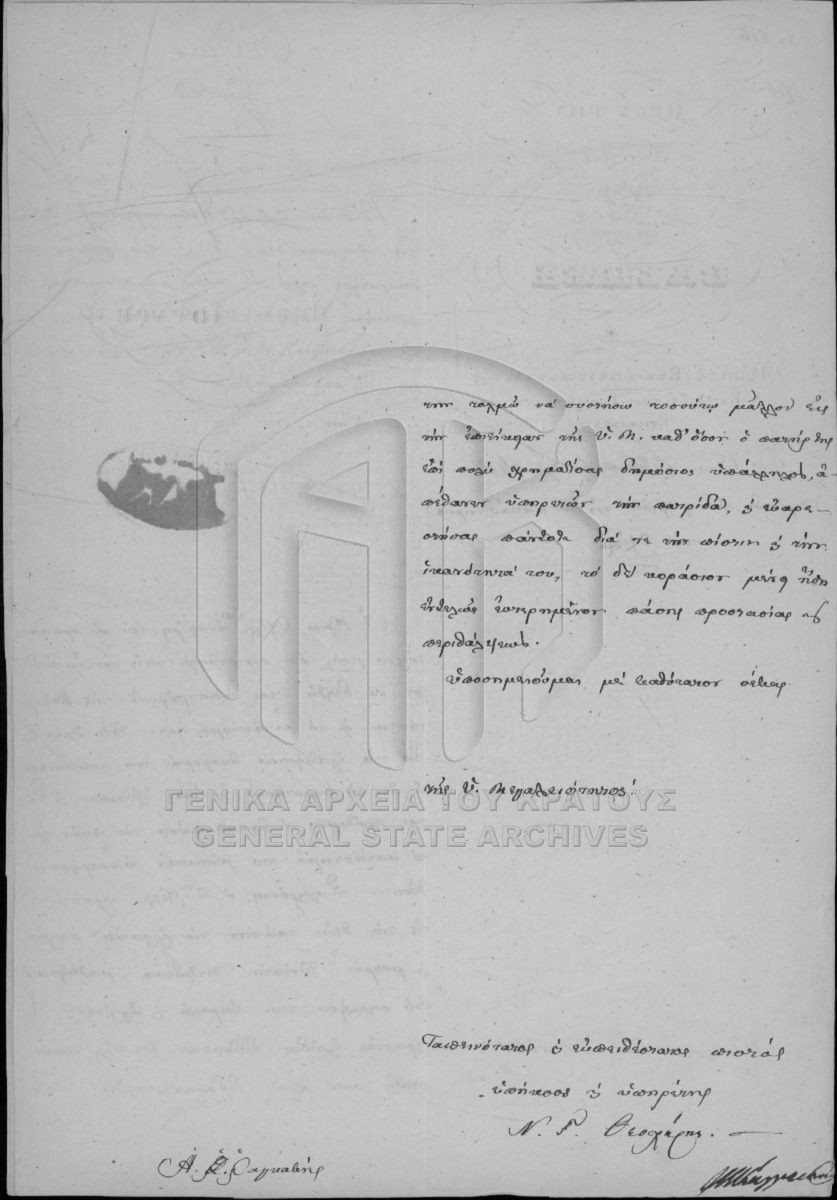 την τολμῶ νὰ συστήσω τοσούτῳ μᾶλλον εἰς
τὴν ἐπιείκειαν τῆς Ὑ. Μ. καθ' ὅσον ὁ πατήρ της
ἐπὶ πολὺ χρηματίσας δημόσιος ὑπάλληλος, ἀ-
πέθανεν ὑπηρετῶν τὴν πατρίδα, ϗ εὐαρε-
στήσας πάντοτε διά τε τὴν πίστιν ϗ τὴν
ἱκανότητά του, τὸ δὲ κοράσιον μένει ἤδη
ἐντελῶς ἐστερημένον πάσης προστασίας ϗ
περιθάλψεως.
ὑποσημειοῦμαι μὲ βαθύτατον σέβας
τῆς Ὑ. Μεγαλειότητος!
ΓΕΝΙΚΑ ΑΡΧΕΙΑ ΤΟΥ ΚΡΑΤΟΥΣ
GENERAL STATE ARCHIVES
Ταπεινότατος ϗ εὐπειθέστατος πιστὸς
ὑπήκοος ϗ ὑπηρέτης
Ν. Γ. Θεοχάρης.
Α. Ῥ. Ραγκαβῆς